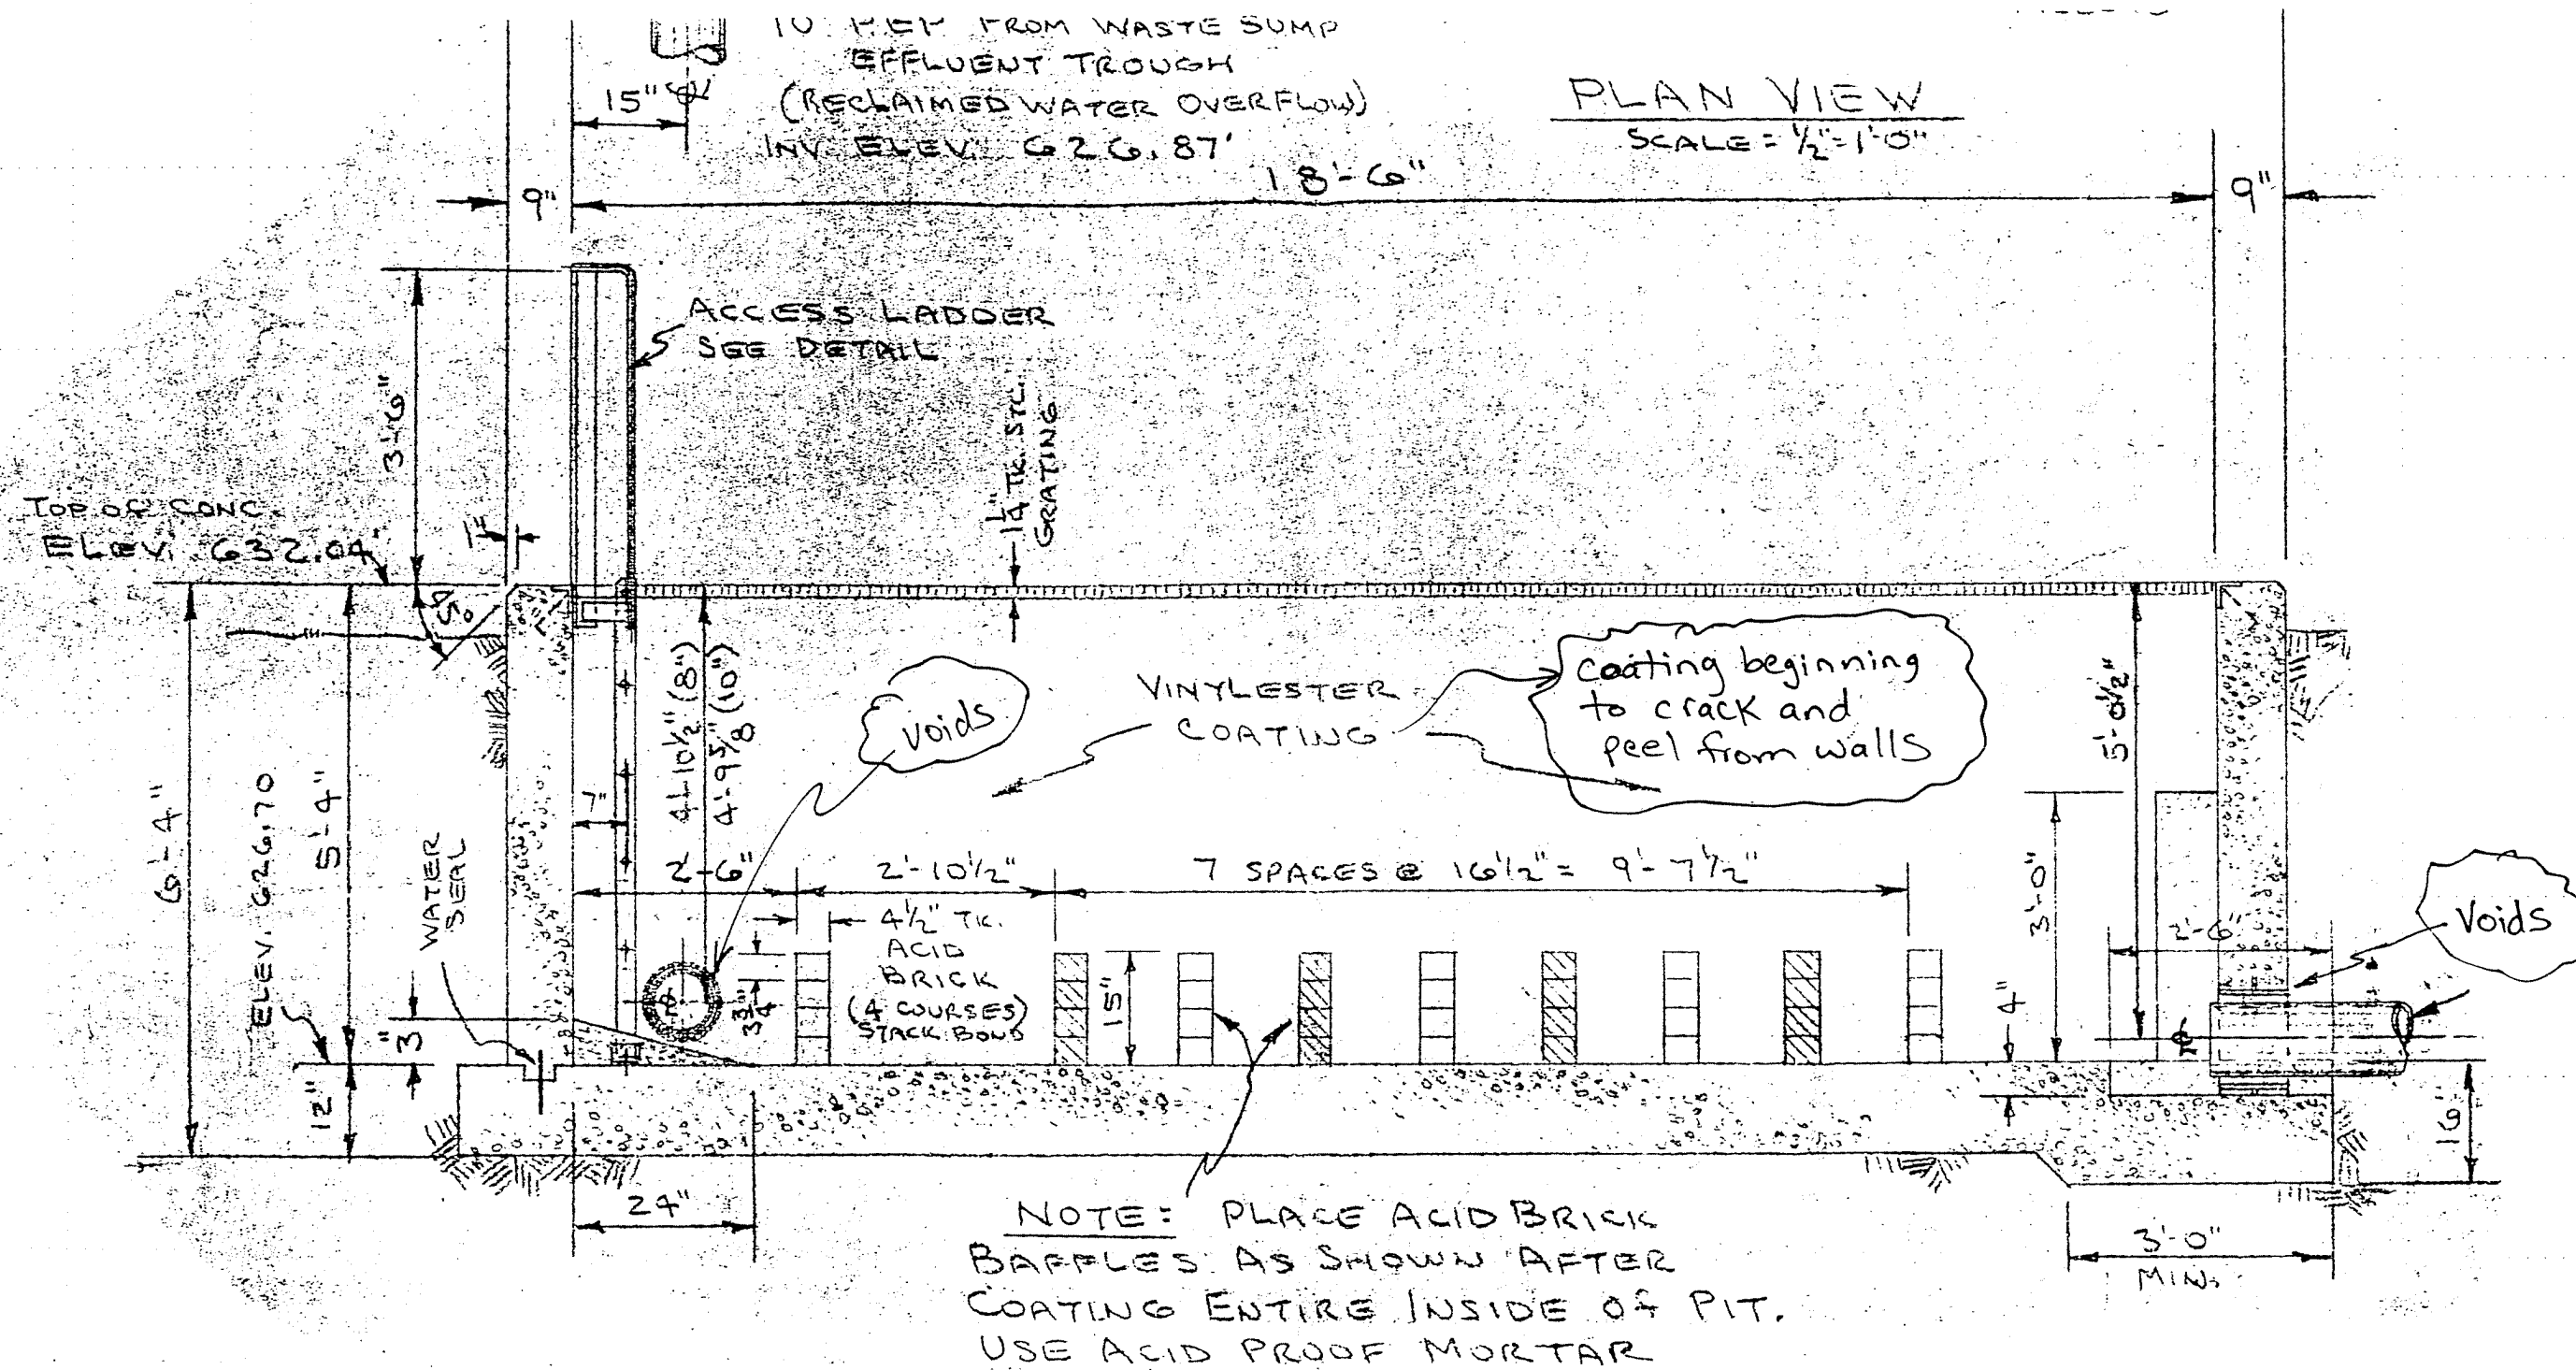 FROM WASTE SUMP
EFFLUENT TROUGH
(RECLAIMED WATER OVERFLOW)
INV. ELEV. 626.87'
15"
PLAN VIEW
SCALE = 1/2" = 1'-0"
9"
18'-6"
9"
ACCESS LADDER
SEE DETAIL
3'-6"
1 1/4" TK. STL.
GRATING
TOP OF CONC.
ELEV. 632.04'
1"
45°
4'-10 1/2" (8")
4'-9 5/8" (10")
voids
VINYLESTER
COATING
coating beginning
to crack and
peel from walls
5'-0 1/2"
6'-4"
ELEV. 626.70
5'-4"
WATER
SEAL
7"
2'-6"
2'-10 1/2"
7 SPACES @ 16 1/2" = 9'-7 1/2"
3'-0"
2'-6"
Voids
4 1/2" TK.
ACID
BRICK
(4 COURSES)
STACK BOND
3 3/4"
15"
4"
3"
12"
16"
24"
3'-0"
MIN.
NOTE: PLACE ACID BRICK
BAFFLES AS SHOWN AFTER
COATING ENTIRE INSIDE OF PIT.
USE ACID PROOF MORTAR